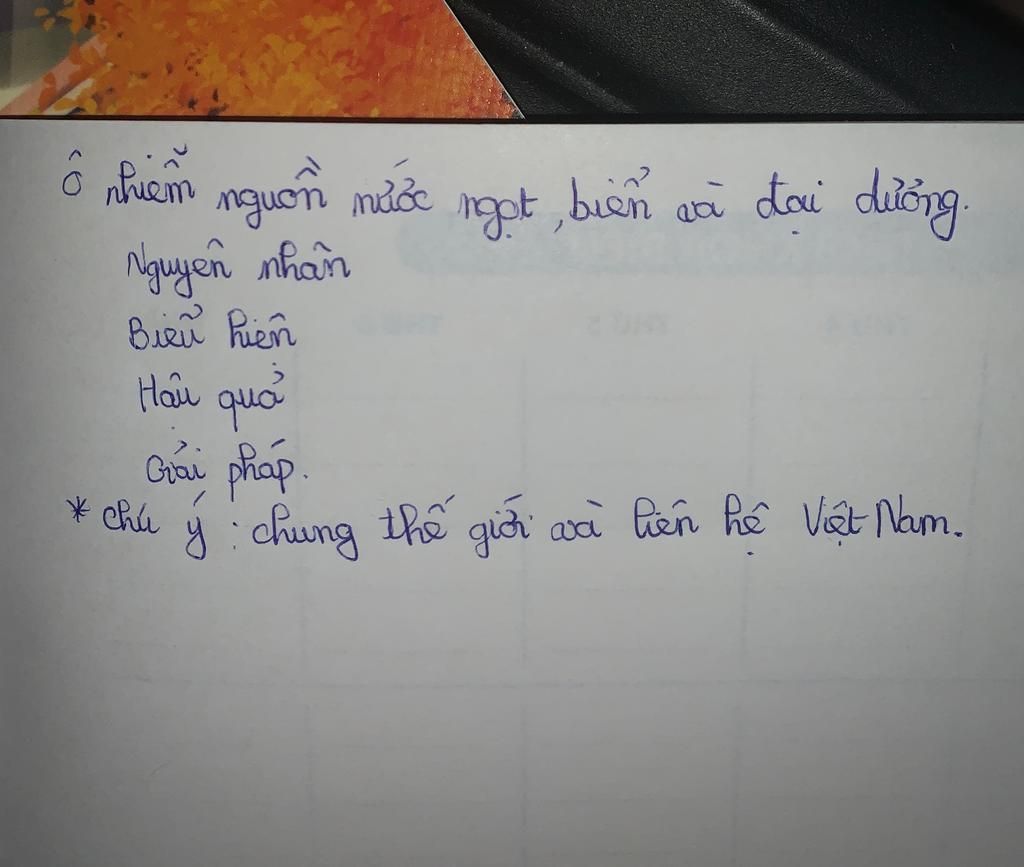 ô nhiễm nguồn nước ngọt, biển và đại dương.
Nguyên nhân
Biểu hiện
Hậu quả
Giải pháp.
* chú ý : chung thế giới và liên hệ Việt Nam.